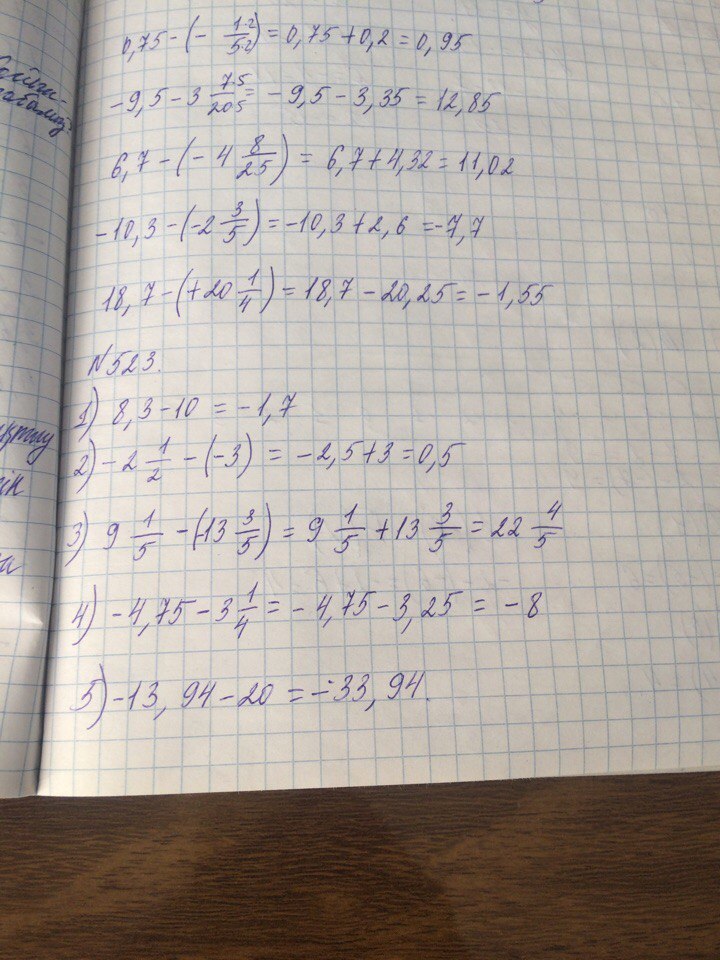 0,75-(-\frac{1·2}{5·2})=0,75+0,2=0,95
-9,5-3\frac{7·5}{20·5}=-9,5-3,35=12,85
6,7-(-4\frac{8}{25})=6,7+4,32=11,02
-10,3-(-2\frac{3}{5})=-10,3+2,6=-7,7
18,7-(+20\frac{1}{4})=18,7-20,25=-1,55
№523.
1) 8,3-10=-1,7
2) -2\frac{1}{2}-(-3)=-2,5+3=0,5
3) 9\frac{1}{5}-(-13\frac{3}{5})=9\frac{1}{5}+13\frac{3}{5}=22\frac{4}{5}
4) -4,75-3\frac{1}{4}=-4,75-3,25=-8
5) -13,94-20=-33,94.